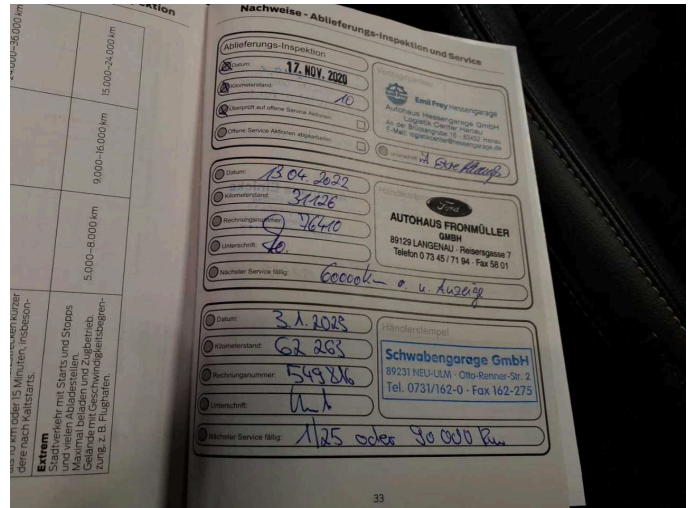 ektion
24.000–36.000 km
15.000–24.000 km
9.000–16.000 km
5.000–8.000 km
als 10 km oder 15 Minuten, insbeson-
dere nach Kaltstarts.
Extrem
Stadtverkehr mit Starts und Stopps
und vielen Abladestellen.
Maximal beladen und Zugbetrieb.
Gelände mit Geschwindigkeitsbegren-
zung, z. B. Flughafen.
Nachweise - Ablieferungs-Inspektion und Service
Ablieferungs-Inspektion
Datum: 17. NOV. 2020
Kilometerstand: 10
Überprüft auf offene Service Aktionen
Offene Service Aktionen abgearbeitet
Vertragspartner
Emil Frey Hessengarage
Autohaus Hessengarage GmbH
Logistik Center Hanau
An der Brückengrube 16 · 63452 Hanau
E-Mail: logistikcenter@hessengarage.de
Unterschrift
Datum: 13.04.2022
Kilometerstand: 31126
Rechnungsnummer: 76410
Unterschrift:
Nächster Service fällig: 60000km o. n. Anzeige
Ford
AUTOHAUS FRONMÜLLER
GMBH
89129 LANGENAU · Reisersgasse 7
Telefon 0 73 45 / 71 94 · Fax 58 01
Datum: 3.1.2023
Kilometerstand: 62 263
Rechnungsnummer: 549816
Unterschrift:
Nächster Service fällig: 1/25 oder 90 000 km
Händlerstempel
Schwabengarage GmbH
89231 NEU-ULM · Otto-Renner-Str. 2
Tel. 0731/162-0 · Fax 162-275
33